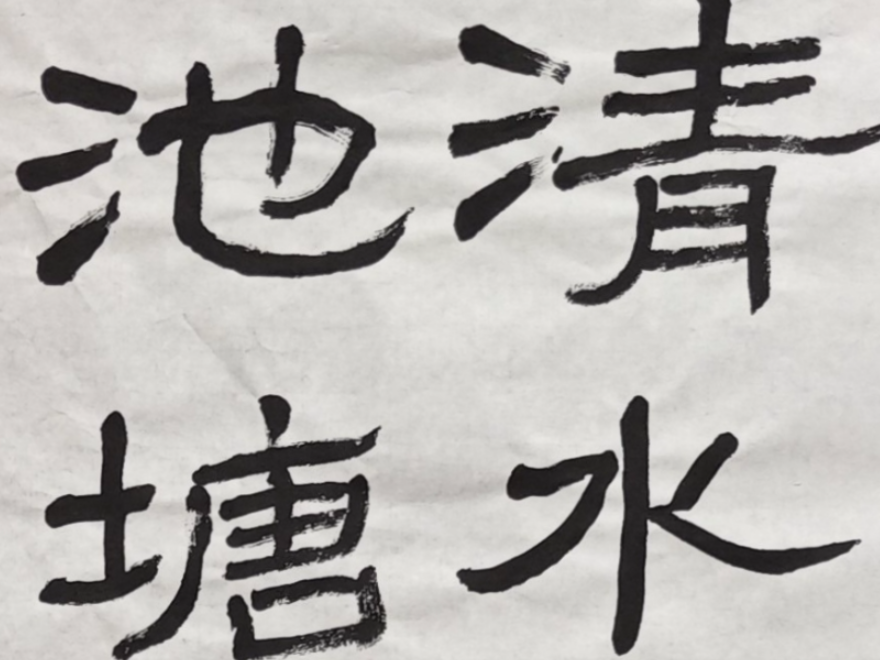 清水
池塘